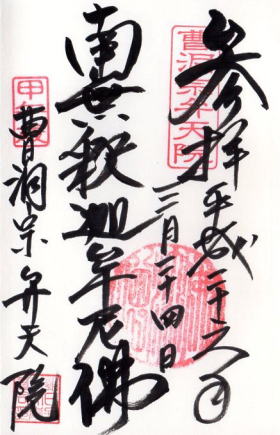 参拝
平成二十六年
三月二十四日
南無釈迦牟尼佛
曹洞宗弁天院
曹洞宗弁天院